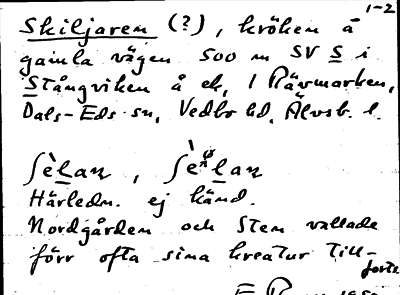 1-2
Skiljaren (?), kröken å
gamla vägen 500 m SV S i
Stångviken å ek, 1 Rävmarken,
Dals-Eds sn, Vedbo hd, Älvsb. l.
Härledn. ej känd.
Nordgården och Sten vallade
förr ofta sina kreatur till-